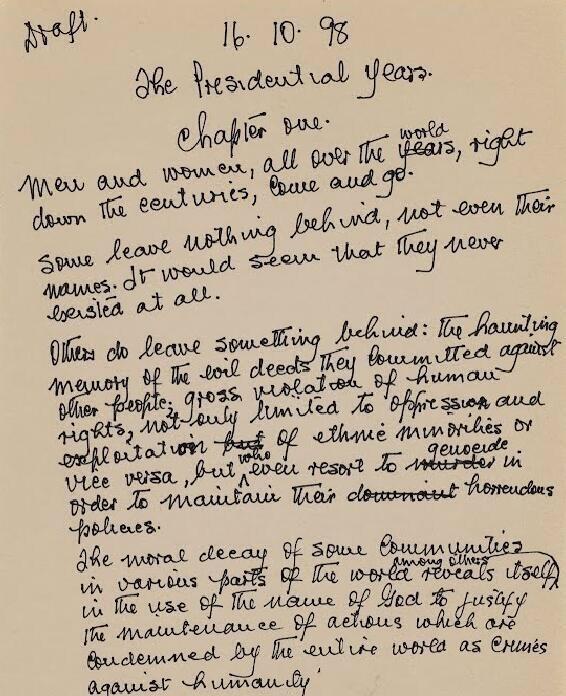 Draft.
16. 10. 98
The Presidential Years.
Chapter one.
Men and women, all over the years world, right
down the centuries, come and go.
Some leave nothing behind, not even their
names. It would seem that they never
existed at all.
Others do leave something behind: the haunting
memory of the evil deeds they committed against
other people; gross violation of human
rights, not only limited to oppression and
exploitation but of ethnic minorities or
vice versa, but who even resort to murder genocide in
order to maintain their dominant horrendous
policies.
The moral decay of some communities
in various parts of the world reveals itself among others
in the use of the name of God to justify
the maintenance of actions which are
condemned by the entire world as crimes
against humanity.